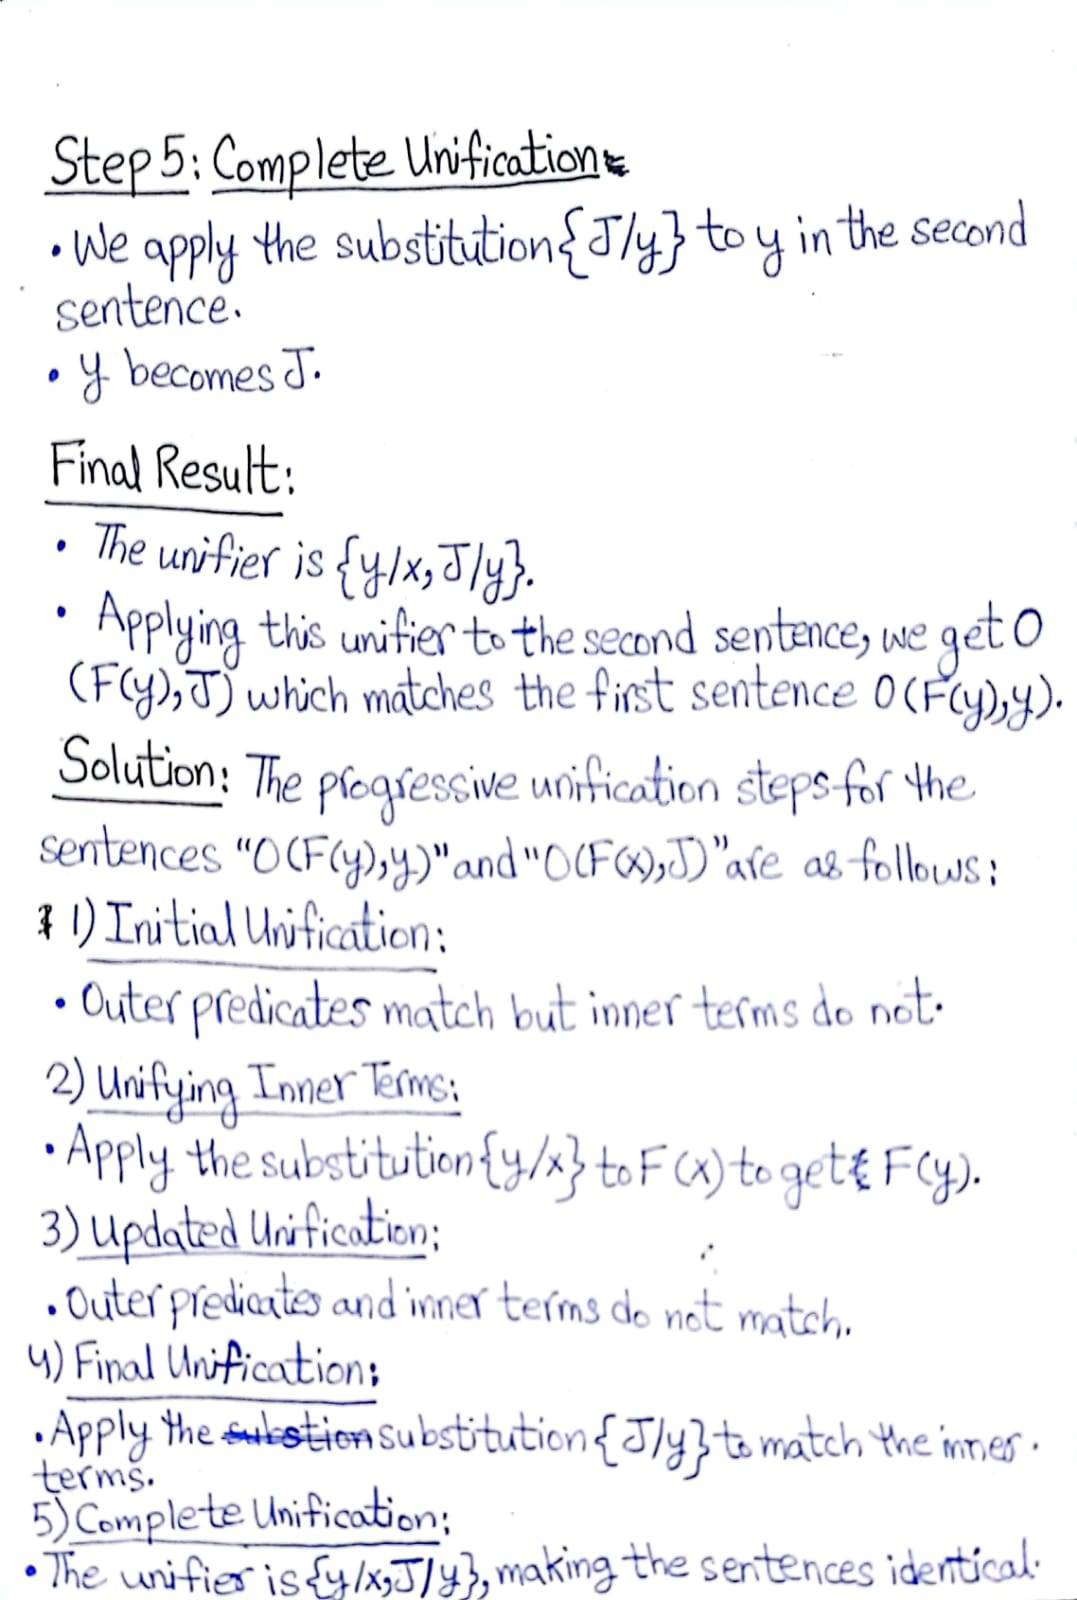 Step 5: Complete Unification
• We apply the substitution {J/y} to y in the second
sentence.
• y becomes J.
Final Result:
• The unifier is {y/x, J/y}.
• Applying this unifier to the second sentence, we get O
(F(y), J) which matches the first sentence O(F(y), y).
Solution: The progressive unification steps for the
sentences "O(F(y), y)" and "O(F(x), J)" are as follows:
1) Initial Unification:
• Outer predicates match but inner terms do not.
2) Unifying Inner Terms:
• Apply the substitution {y/x} to F(x) to get F(y).
3) Updated Unification:
• Outer predicates and inner terms do not match.
4) Final Unification:
• Apply the substion substitution {J/y} to match the inner
terms.
5) Complete Unification:
• The unifier is {y/x, J/y}, making the sentences identical.